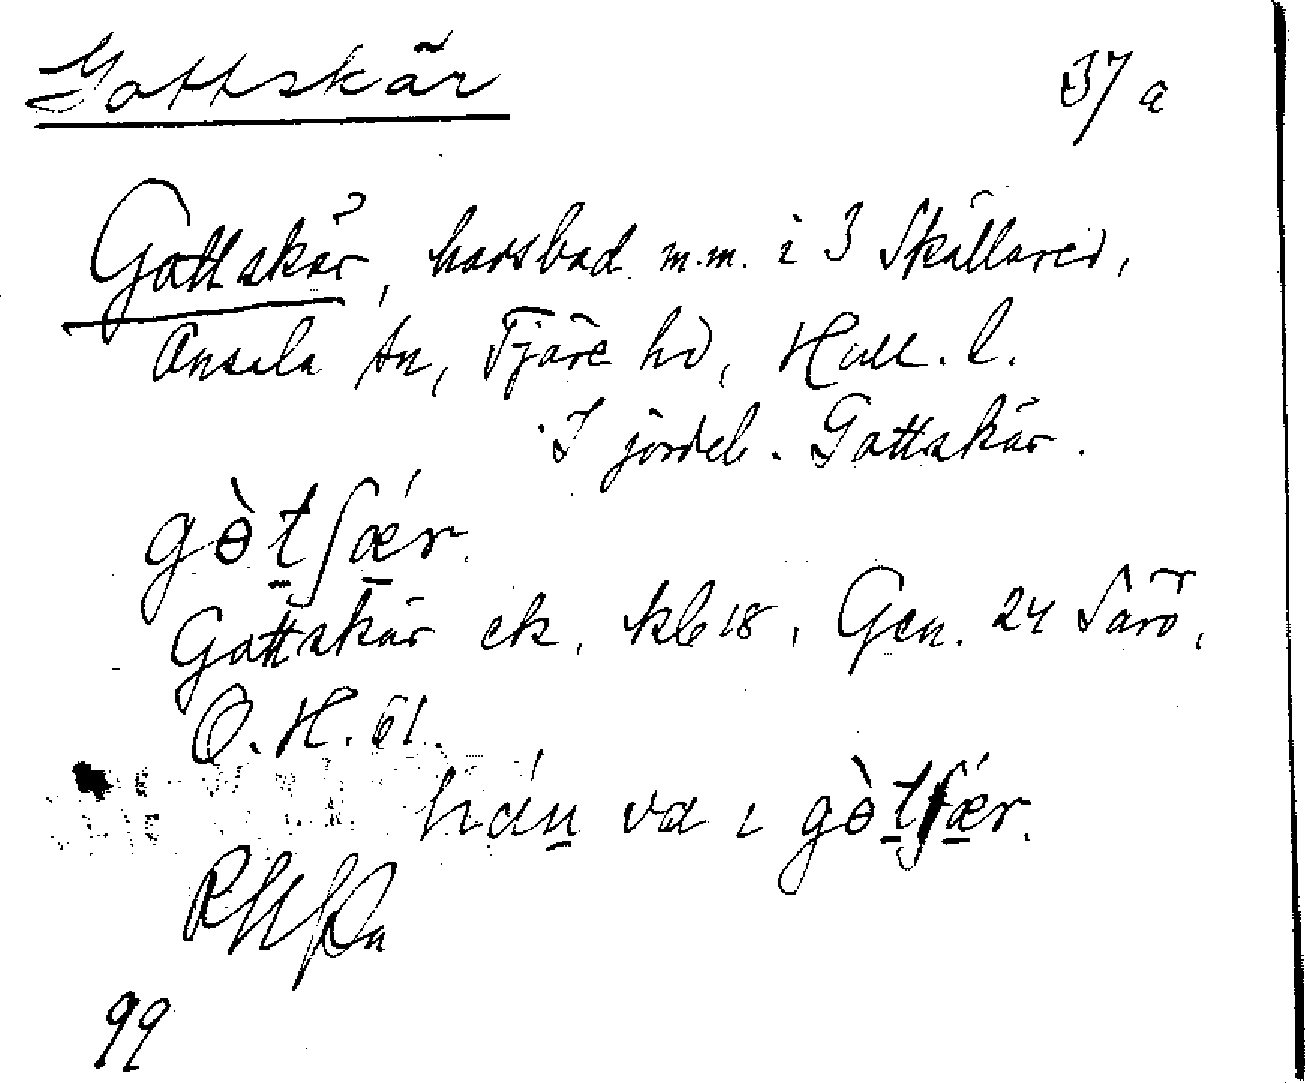 Gottskär
37 a
Gottskär, havsbad m.m. i 3 Skällared,
Onsala sn, Fjäre hd, Hall. l.
I jordeb. Gottskär.
gòtʃǽr.
Gottskär ek. kbl 18, Gen. 24 Särö,
O. H. 61.
hán va ı gòtʃǽr.
99